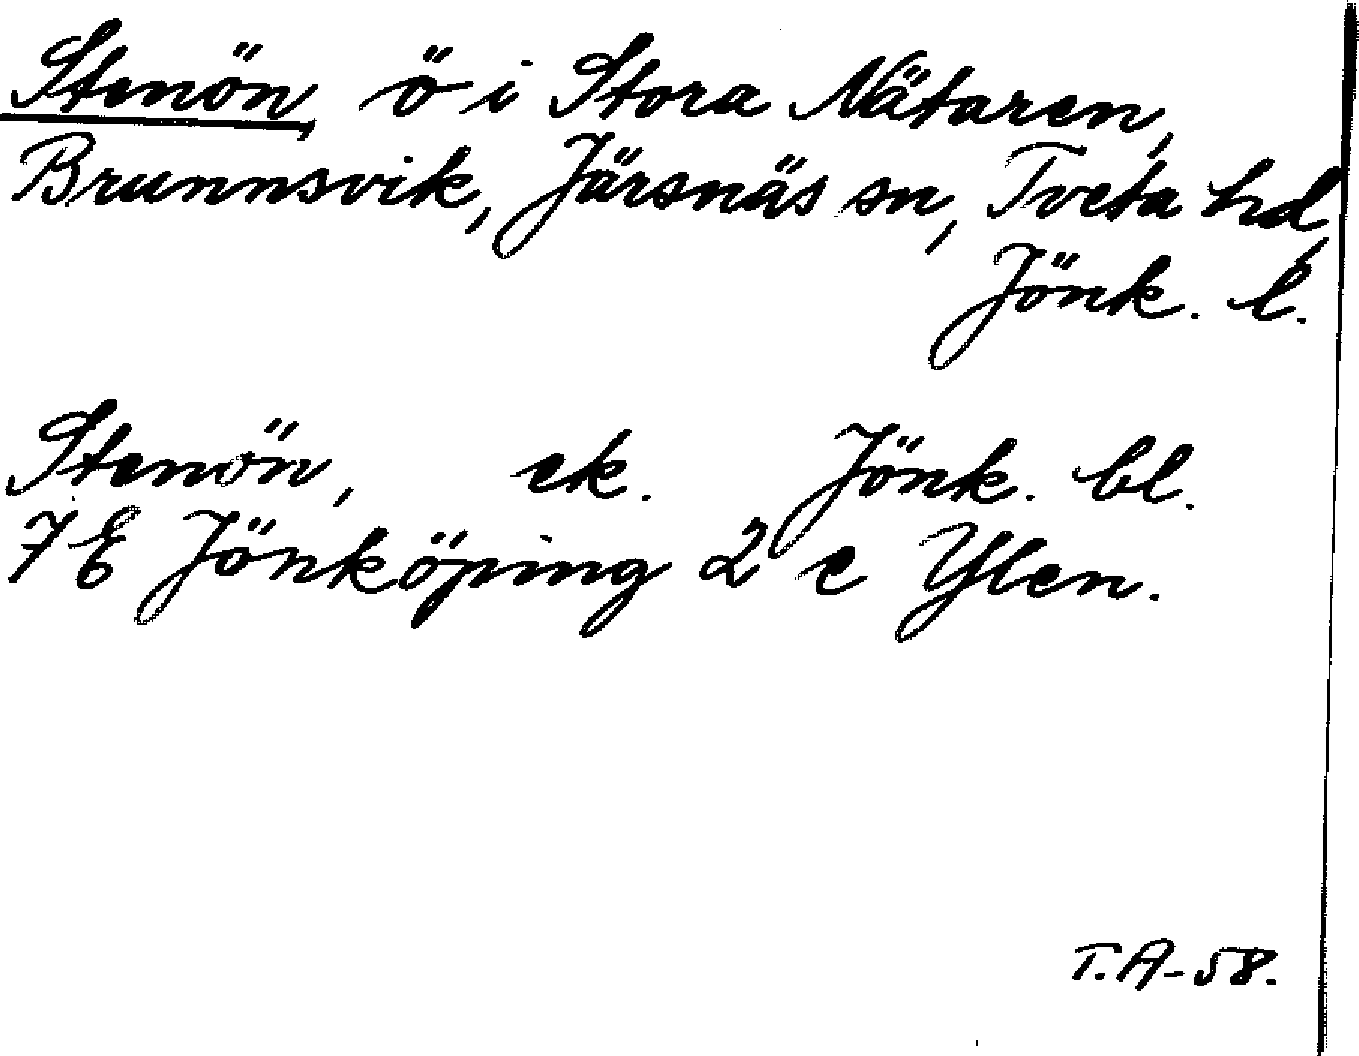 Stenön, ö i Stora Nätaren,
Brunnsvik, Järsnäs sn, Tveta hd,
Jönk. l.
Stenön, ek. Jönk. bl.
7E Jönköping 2 c Ylen.
T.A-58.